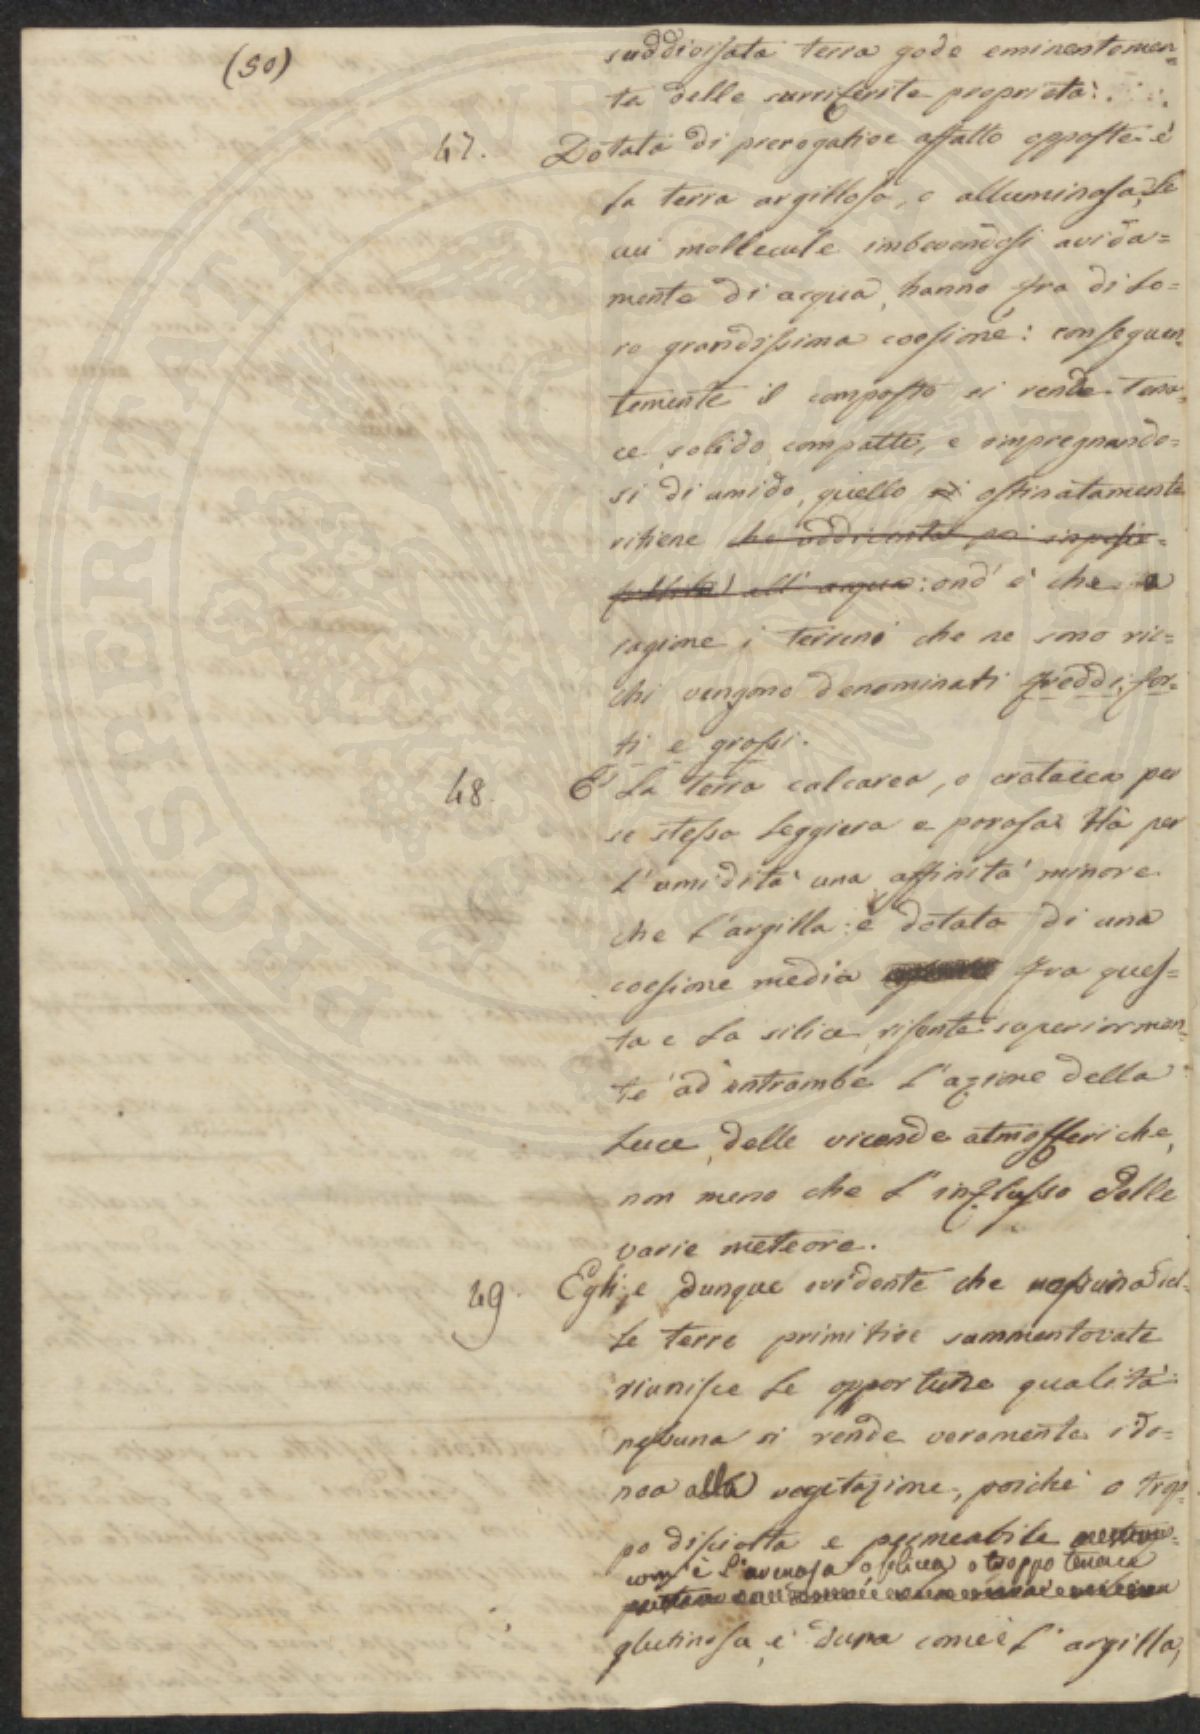 (50)
suddivisata terra gode eminentemen=
te delle surriferite proprietà.
47. Dotata di prerogative affatto opposte è
la terra argillosa, o alluminosa, le
cui mollecule imbevendosi avida=
mente di acqua, hanno fra di lo=
ro grandissima coesione: conseguen=
temente il composto si rende tena=
ce, solido, compatto, e impregnando=
si di umido, quello ostinatamente
ritiene
all' acqua: ond' è che a
ragione i terreni che ne sono ric=
chi vengono denominati freddi, for=
ti e grossi.
48. È la terra calcarea, o cretacea per
se stessa leggiera e porosa: Hà per
l' umidità una affinità minore
che l' argilla: è dotata di una
coesione media fra ques=
ta e la silice, risente superiormen=
te ad entrambe l' azione della
luce, delle vicende atmosferiche,
non meno che l' influsso delle
varie meteore.
49. Egli è dunque evidente che nessuna del=
le terre primitive summentovate
riunisce le opportune qualità:
nessuna si rende veramente ido=
nea alla vegetazione, poichè o trop=
po disciolta e permeabile
com' è l' arenosa o silicea o troppo tenace
glutinosa, e dura come è l' argilla,